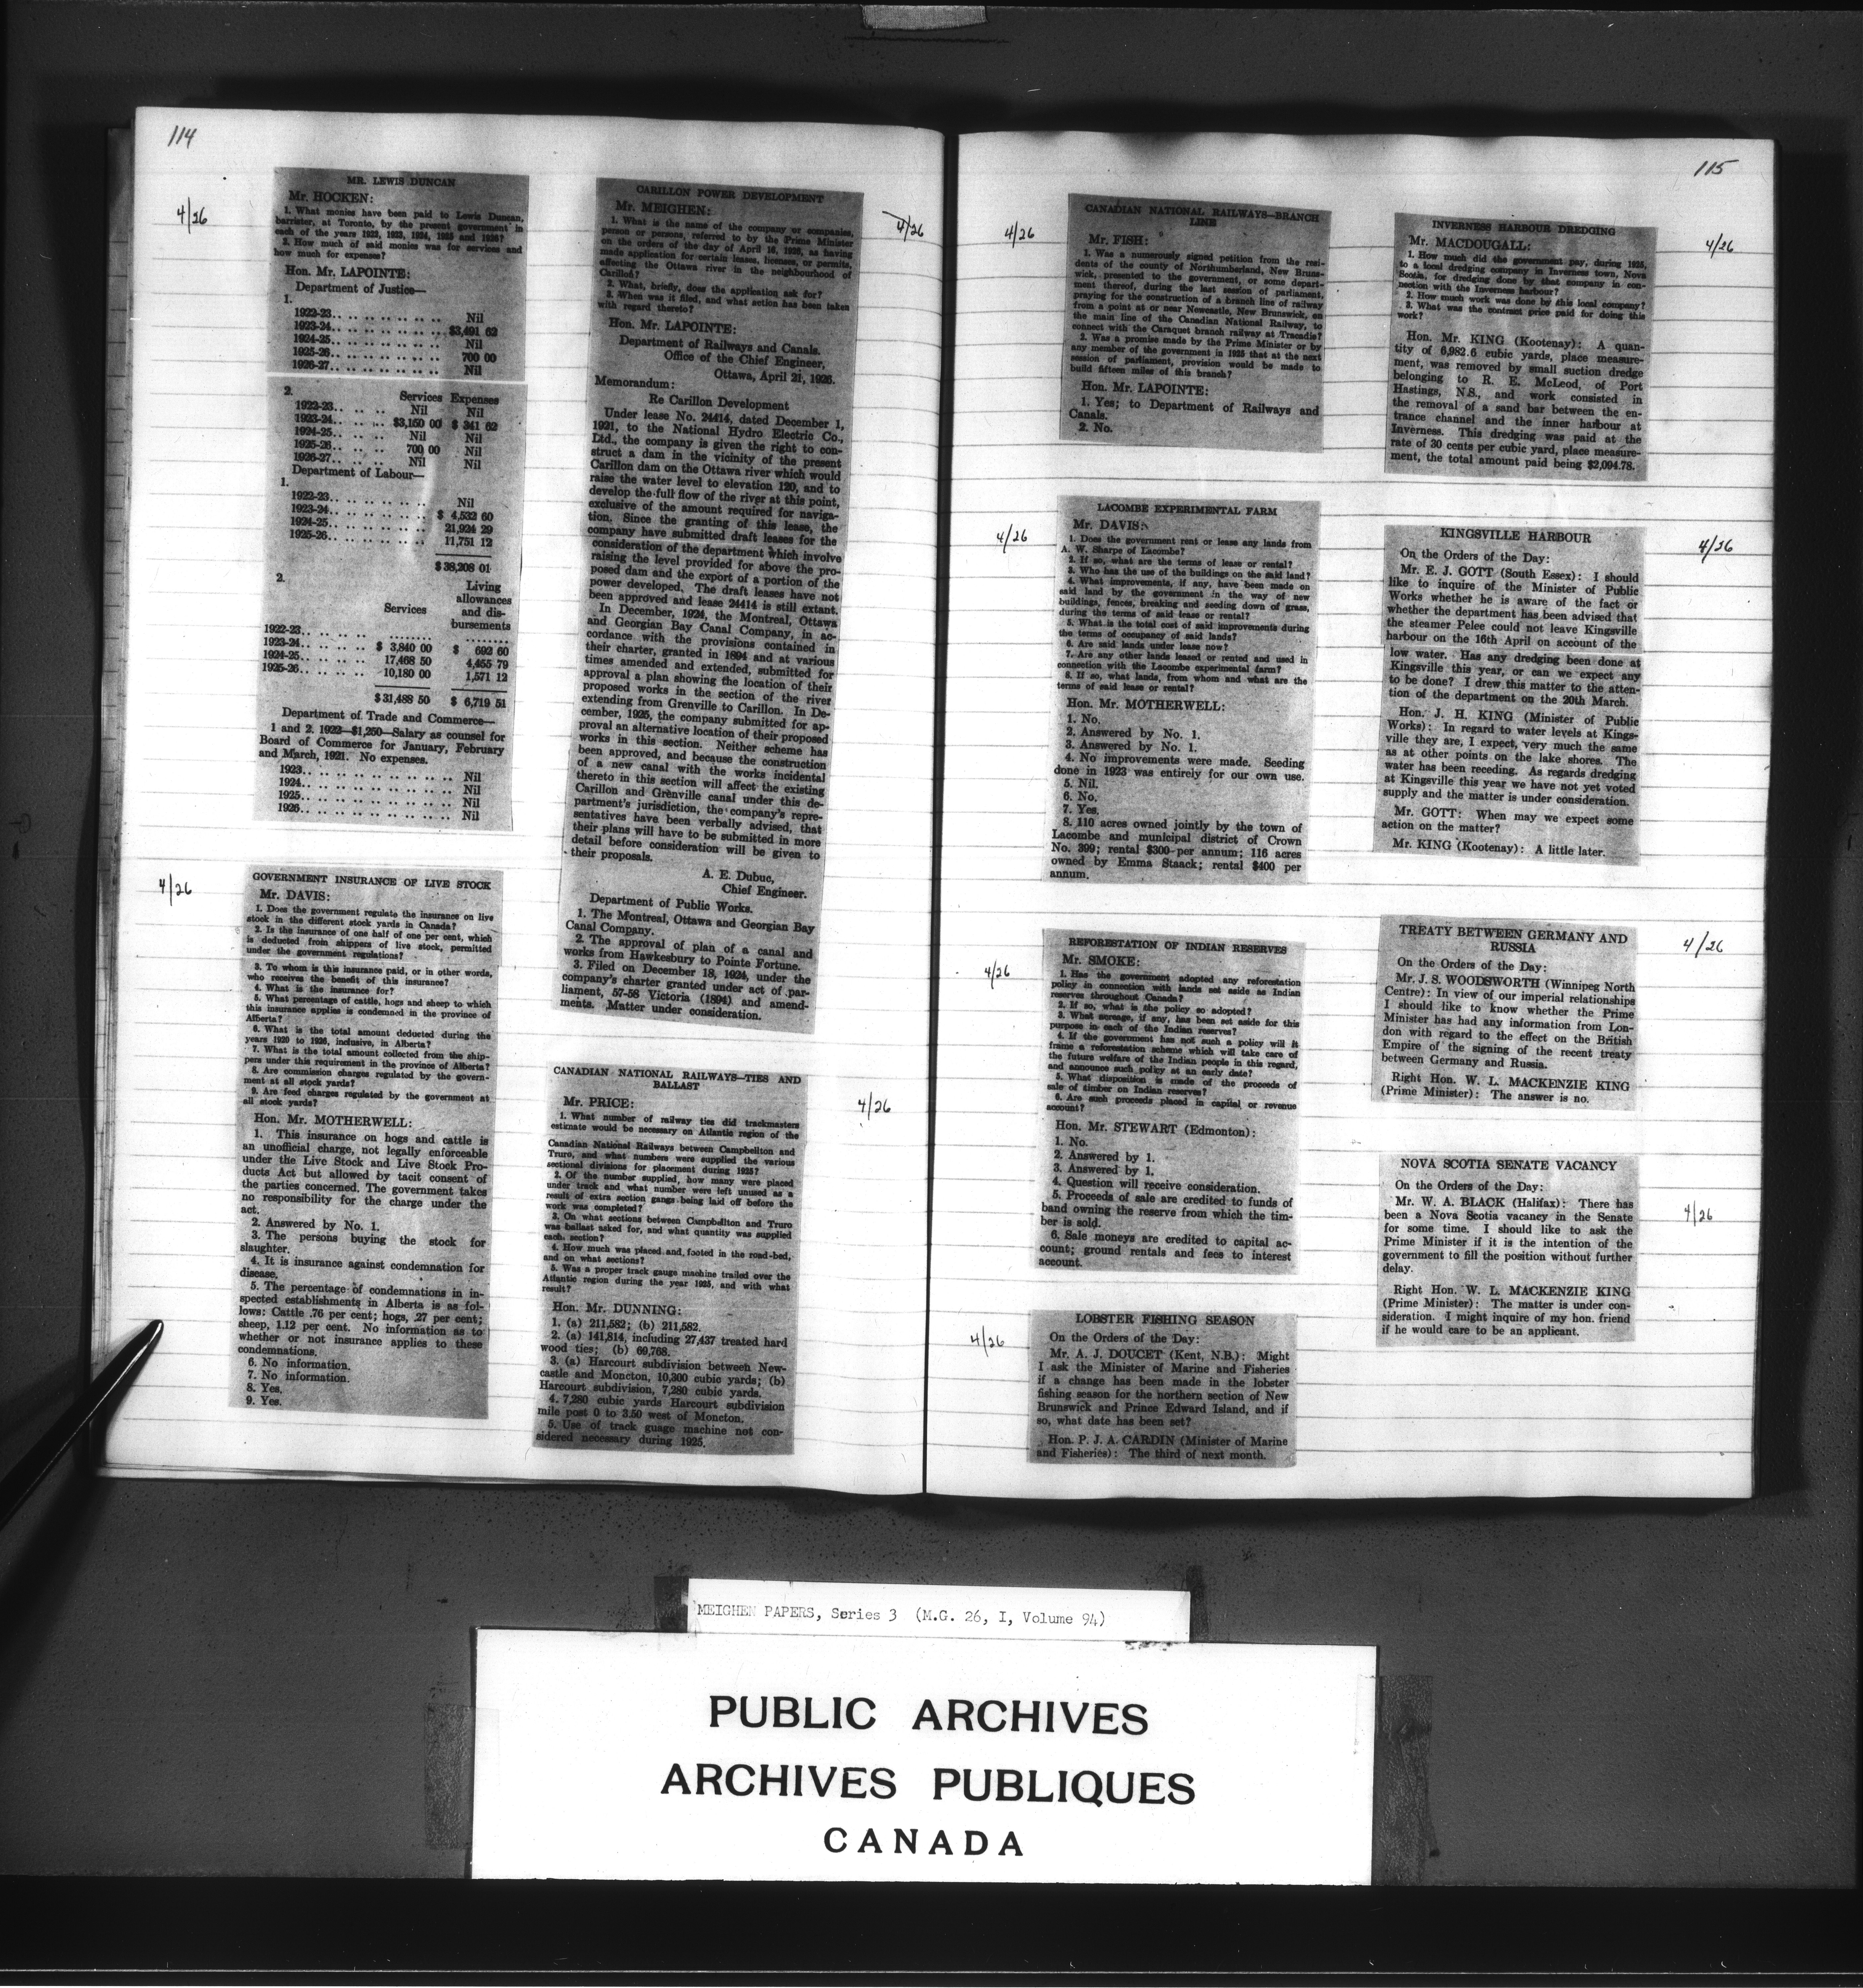 114
4/26
MR. LEWIS DUNCAN
Mr. HOCKEN:
1. What monies have been paid to Lewis Duncan,
barrister, at Toronto, by the present government in
each of the years 1922, 1923, 1924, 1925 and 1926?
2. How much of said monies was for services and
how much for expenses?
Hon. Mr. LAPOINTE:
Department of Justice—
1.
1922-23.. .. .. .. .. .. .. Nil
1923-24.. .. .. .. .. .. .. $3,491 62
1924-25.. .. .. .. .. .. .. Nil
1925-26.. .. .. .. .. .. .. 700 00
1926-27.. .. .. .. .. .. .. Nil
2.
Services Expenses
1922-23.. .. .. Nil Nil
1923-24.. .. .. $3,150 00 $ 341 62
1924-25.. .. .. Nil Nil
1925-26.. .. .. 700 00 Nil
1926-27.. .. .. Nil Nil
Department of Labour—
1.
1922-23.. .. .. .. .. .. Nil
1923-24.. .. .. .. .. .. $ 4,532 60
1924-25.. .. .. .. .. .. 21,924 29
1925-26.. .. .. .. .. .. 11,751 12
$38,208 01
2.
Living
allowances
Services and dis-
bursements
1922-23.. .. .. .. ........ ........
1923-24.. .. .. .. $ 3,840 00 $ 692 60
1924-25.. .. .. .. 17,468 50 4,455 79
1925-26.. .. .. .. 10,180 00 1,571 12
$31,488 50 $ 6,719 51
Department of Trade and Commerce—
1 and 2. 1922—$1,250—Salary as counsel for
Board of Commerce for January, February
and March, 1921. No expenses.
1923.. .. .. .. .. .. .. .. .. Nil
1924.. .. .. .. .. .. .. .. .. Nil
1925.. .. .. .. .. .. .. .. .. Nil
1926.. .. .. .. .. .. .. .. .. Nil
4/26
GOVERNMENT INSURANCE OF LIVE STOCK
Mr. DAVIS:
1. Does the government regulate the insurance on live
stock in the different stock yards in Canada?
2. Is the insurance of one half of one per cent, which
is deducted from shippers of live stock, permitted
under the government regulations?
3. To whom is this insurance paid, or in other words,
who receives the benefit of this insurance?
4. What is the insurance for?
5. What percentage of cattle, hogs and sheep to which
this insurance applies is condemned in the province of
Alberta?
6. What is the total amount deducted during the
years 1920 to 1926, inclusive, in Alberta?
7. What is the total amount collected from the ship-
pers under this requirement in the province of Alberta?
8. Are commission charges regulated by the govern-
ment at all stock yards?
9. Are feed charges regulated by the government at
all stock yards?
Hon. Mr. MOTHERWELL:
1. This insurance on hogs and cattle is
an unofficial charge, not legally enforceable
under the Live Stock and Live Stock Pro-
ducts Act but allowed by tacit consent of
the parties concerned. The government takes
no responsibility for the charge under the
act.
2. Answered by No. 1.
3. The persons buying the stock for
slaughter.
4. It is insurance against condemnation for
disease.
5. The percentage of condemnations in in-
spected establishments in Alberta is as fol-
lows: Cattle .76 per cent; hogs, .27 per cent;
sheep, 1.12 per cent. No information as to
whether or not insurance applies to these
condemnations.
6. No information.
7. No information.
8. Yes.
9. Yes.
CARILLON POWER DEVELOPMENT
4/26
Mr. MEIGHEN:
1. What is the name of the company or companies,
person or persons, referred to by the Prime Minister
on the orders of the day of April 16, 1926, as having
made application for certain leases, licenses, or permits,
affecting the Ottawa river in the neighbourhood of
Carillon?
2. What, briefly, does the application ask for?
3. When was it filed, and what action has been taken
with regard thereto?
Hon. Mr. LAPOINTE:
Department of Railways and Canals.
Office of the Chief Engineer,
Ottawa, April 21, 1926.
Memorandum:
Re Carillon Development
Under lease No. 24414, dated December 1,
1921, to the National Hydro Electric Co.,
Ltd., the company is given the right to con-
struct a dam in the vicinity of the present
Carillon dam on the Ottawa river which would
raise the water level to elevation 120, and to
develop the full flow of the river at this point,
exclusive of the amount required for naviga-
tion. Since the granting of this lease, the
company have submitted draft leases for the
consideration of the department which involve
raising the level provided for above the pro-
posed dam and the export of a portion of the
power developed. The draft leases have not
been approved and lease 24414 is still extant.
In December, 1924, the Montreal, Ottawa
and Georgian Bay Canal Company, in ac-
cordance with the provisions contained in
their charter, granted in 1894 and at various
times amended and extended, submitted for
approval a plan showing the location of their
proposed works in the section of the river
extending from Grenville to Carillon. In De-
cember, 1925, the company submitted for ap-
proval an alternative location of their proposed
works in this section. Neither scheme has
been approved, and because the construction
of a new canal with the works incidental
thereto in this section will affect the existing
Carillon and Grenville canal under this de-
partment's jurisdiction, the company's repre-
sentatives have been verbally advised, that
their plans will have to be submitted in more
detail before consideration will be given to
their proposals.
A. E. Dubuc,
Chief Engineer.
Department of Public Works.
1. The Montreal, Ottawa and Georgian Bay
Canal Company.
2. The approval of plan of a canal and
works from Hawkesbury to Pointe Fortune.
3. Filed on December 18, 1924, under the
company's charter granted under act of par-
liament, 57-58 Victoria (1894) and amend-
ments. Matter under consideration.
CANADIAN NATIONAL RAILWAYS—TIES AND
BALLAST
4/26
Mr. PRICE:
1. What number of railway ties did trackmasters
estimate would be necessary on Atlantic region of the
Canadian National Railways between Campbellton and
Truro, and what numbers were supplied the various
sectional divisions for placement during 1925?
2. Of the number supplied, how many were placed
under track and what number were left unused as a
result of extra section gangs being laid off before the
work was completed?
3. On what sections between Campbellton and Truro
was ballast asked for, and what quantity was supplied
each section?
4. How much was placed and, footed in the road-bed,
and on what sections?
5. Was a proper track gauge machine trailed over the
Atlantic region during the year 1925, and with what
result?
Hon. Mr. DUNNING:
1. (a) 211,582; (b) 211,582.
2. (a) 141,814, including 27,437 treated hard
wood ties; (b) 69,768.
3. (a) Harcourt subdivision between New-
castle and Moncton, 10,300 cubic yards; (b)
Harcourt subdivision, 7,280 cubic yards.
4. 7,280 cubic yards Harcourt subdivision
mile post 0 to 3.50 west of Moncton.
5. Use of track guage machine not con-
sidered necessary during 1925.
115
4/26
CANADIAN NATIONAL RAILWAYS—BRANCH
LINE
Mr. FISH:
1. Was a numerously signed petition from the resi-
dents of the county of Northumberland, New Bruns-
wick, presented to the government, or some depart-
ment thereof, during the last session of parliament,
praying for the construction of a branch line of railway
from a point at or near Newcastle, New Brunswick, on
the main line of the Canadian National Railway, to
connect with the Caraquet branch railway at Tracadie?
2. Was a promise made by the Prime Minister or by
any member of the government in 1925 that at the next
session of parliament, provision would be made to
build fifteen miles of this branch?
Hon. Mr. LAPOINTE:
1. Yes; to Department of Railways and
Canals.
2. No.
4/26
LACOMBE EXPERIMENTAL FARM
Mr. DAVIS:
1. Does the government rent or lease any lands from
A. W. Sharpe of Lacombe?
2. If so, what are the terms of lease or rental?
3. Who has the use of the buildings on the said land?
4. What improvements, if any, have been made on
said land by the government in the way of new
buildings, fences, breaking and seeding down of grass,
during the terms of said lease or rental?
5. What is the total cost of said improvements during
the terms of occupancy of said lands?
6. Are said lands under lease now?
7. Are any other lands leased or rented and used in
connection with the Lacombe experimental farm?
8. If so, what lands, from whom and what are the
terms of said lease or rental?
Hon. Mr. MOTHERWELL:
1. No.
2. Answered by No. 1.
3. Answered by No. 1.
4. No improvements were made. Seeding
done in 1923 was entirely for our own use.
5. Nil.
6. No.
7. Yes.
8. 110 acres owned jointly by the town of
Lacombe and municipal district of Crown
No. 399; rental $300 per annum; 116 acres
owned by Emma Staack; rental $400 per
annum.
4/26
REFORESTATION OF INDIAN RESERVES
Mr. SMOKE:
1. Has the government adopted any reforestation
policy in connection with lands set aside as Indian
reserves throughout Canada?
2. If so, what is the policy so adopted?
3. What acreage, if any, has been set aside for this
purpose in each of the Indian reserves?
4. If the government has not such a policy will it
frame a reforestation scheme which will take care of
the future welfare of the Indian people in this regard,
and announce such policy at an early date?
5. What disposition is made of the proceeds of
sale of timber on Indian reserves?
6. Are such proceeds placed in capital or revenue
account?
Hon. Mr. STEWART (Edmonton):
1. No.
2. Answered by 1.
3. Answered by 1.
4. Question will receive consideration.
5. Proceeds of sale are credited to funds of
band owning the reserve from which the tim-
ber is sold.
6. Sale moneys are credited to capital ac-
count; ground rentals and fees to interest
account.
4/26
LOBSTER FISHING SEASON
On the Orders of the Day:
Mr. A. J. DOUCET (Kent, N.B.): Might
I ask the Minister of Marine and Fisheries
if a change has been made in the lobster
fishing season for the northern section of New
Brunswick and Prince Edward Island, and if
so, what date has been set?
Hon. P. J. A. CARDIN (Minister of Marine
and Fisheries): The third of next month.
INVERNESS HARBOUR DREDGING
4/26
Mr. MACDOUGALL:
1. How much did the government pay, during 1925,
to a local dredging company in Inverness town, Nova
Scotia, for dredging done by that company in con-
nection with the Inverness harbour?
2. How much work was done by this local company?
3. What was the contract price paid for doing this
work?
Hon. Mr. KING (Kootenay): A quan-
tity of 6,982.6 cubic yards, place measure-
ment, was removed by small suction dredge
belonging to R. E. McLeod, of Port
Hastings, N.S., and work consisted in
the removal of a sand bar between the en-
trance channel and the inner harbour at
Inverness. This dredging was paid at the
rate of 30 cents per cubic yard, place measure-
ment, the total amount paid being $2,094.78.
KINGSVILLE HARBOUR
4/26
On the Orders of the Day:
Mr. E. J. GOTT (South Essex): I should
like to inquire of the Minister of Public
Works whether he is aware of the fact or
whether the department has been advised that
the steamer Pelee could not leave Kingsville
harbour on the 16th April on account of the
low water. Has any dredging been done at
Kingsville this year, or can we expect any
to be done? I drew this matter to the atten-
tion of the department on the 20th March.
Hon. J. H. KING (Minister of Public
Works): In regard to water levels at Kings-
ville they are, I expect, very much the same
as at other points on the lake shores. The
water has been receding. As regards dredging
at Kingsville this year we have not yet voted
supply and the matter is under consideration.
Mr. GOTT: When may we expect some
action on the matter?
Mr. KING (Kootenay): A little later.
TREATY BETWEEN GERMANY AND
RUSSIA
4/26
On the Orders of the Day:
Mr. J. S. WOODSWORTH (Winnipeg North
Centre): In view of our imperial relationships
I should like to know whether the Prime
Minister has had any information from Lon-
don with regard to the effect on the British
Empire of the signing of the recent treaty
between Germany and Russia.
Right Hon. W. L. MACKENZIE KING
(Prime Minister): The answer is no.
NOVA SCOTIA SENATE VACANCY
4/26
On the Orders of the Day:
Mr. W. A. BLACK (Halifax): There has
been a Nova Scotia vacancy in the Senate
for some time. I should like to ask the
Prime Minister if it is the intention of the
government to fill the position without further
delay.
Right Hon. W. L. MACKENZIE KING
(Prime Minister): The matter is under con-
sideration. I might inquire of my hon. friend
if he would care to be an applicant.
MEIGHEN PAPERS, Series 3 (M.G. 26, I, Volume 94)
PUBLIC ARCHIVES
ARCHIVES PUBLIQUES
CANADA